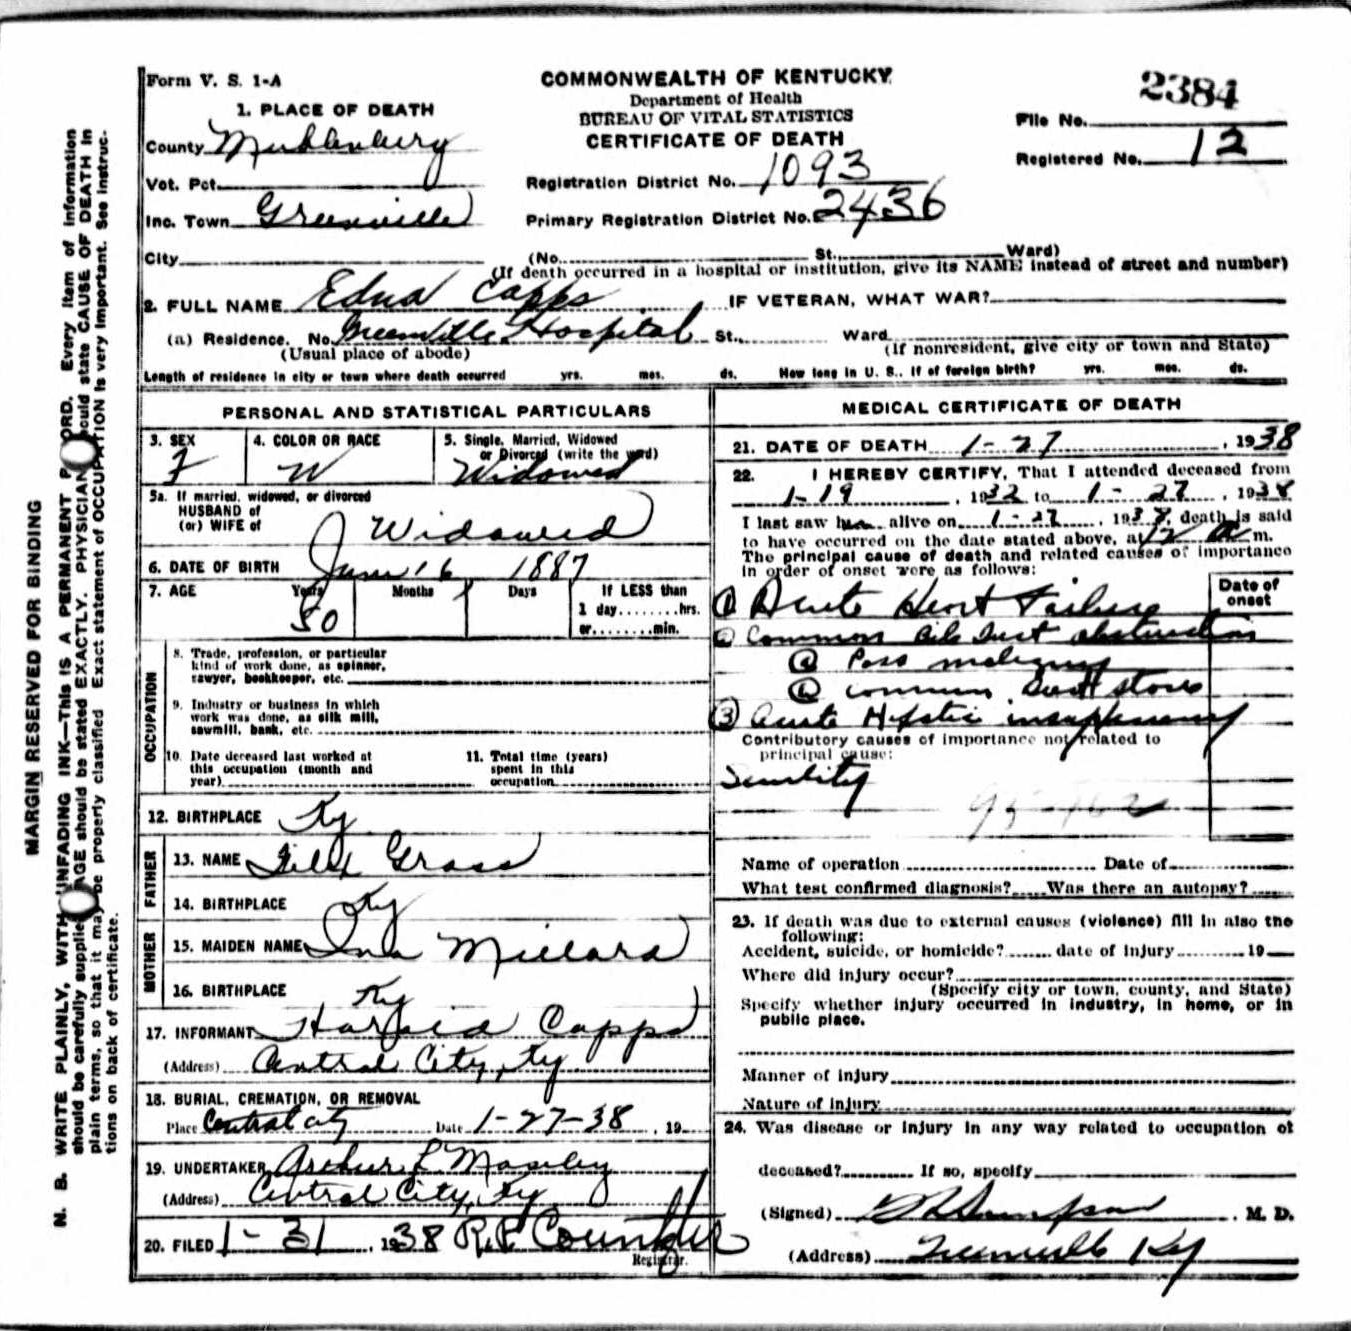 Form V. S. 1-A
COMMONWEALTH OF KENTUCKY
Department of Health
BUREAU OF VITAL STATISTICS
CERTIFICATE OF DEATH
File No. 2384
Registered No. 12
1. PLACE OF DEATH
County Muhlenburg
Vot. Pct.
Registration District No. 1093
Inc. Town Greenville
Primary Registration District No. 2436
City (No. St. Ward)
(If death occurred in a hospital or institution, give its NAME instead of street and number)
2. FULL NAME Edna Capps IF VETERAN, WHAT WAR?
(a) Residence. No. Greenville Hospital St., Ward
(Usual place of abode) (If nonresident, give city or town and State)
Length of residence in city or town where death occurred yrs. mos. ds. How long in U. S., if of foreign birth? yrs. mos. ds.
PERSONAL AND STATISTICAL PARTICULARS
3. SEX F
4. COLOR OR RACE W
5. Single, Married, Widowed
or Divorced (write the word)
Widowed
5a. If married, widowed, or divorced
HUSBAND of
(or) WIFE of Widowed
6. DATE OF BIRTH June 16 1887
7. AGE Years Months Days If LESS than
50 1 day........hrs.
or........min.
OCCUPATION
8. Trade, profession, or particular
kind of work done, as spinner,
sawyer, bookkeeper, etc.
9. Industry or business in which
work was done, as silk mill,
sawmill, bank, etc.
10. Date deceased last worked at
this occupation (month and
year)
11. Total time (years)
spent in this
occupation
12. BIRTHPLACE Ky
FATHER
13. NAME Grass
14. BIRTHPLACE Ky
MOTHER
15. MAIDEN NAME Ina Millard
16. BIRTHPLACE Ky
17. INFORMANT Capps
(Address) Central City, Ky
18. BURIAL, CREMATION, OR REMOVAL
Place Central City Date 1-27-38, 19
19. UNDERTAKER Arthur L Moseley
(Address) Central City, Ky
20. FILED 1-31, 1938 R.P. Countzler
Registrar.
MEDICAL CERTIFICATE OF DEATH
21. DATE OF DEATH 1-27, 1938
22. I HEREBY CERTIFY, That I attended deceased from
1-19, 1932 to 1-27, 1938
I last saw h alive on 1-27, 1938, death is said
to have occurred on the date stated above, at 12 a m.
The principal cause of death and related causes of importance
in order of onset were as follows:
Date of
onset
① Acute Heart Failure
② Common Bile Duct obstruction
ⓐ Poss malignancy
ⓑ common Duct stones
③ Acute Hepatic insufficiency
Contributory causes of importance not related to
principal cause:
Name of operation Date of
What test confirmed diagnosis? Was there an autopsy?
23. If death was due to external causes (violence) fill in also the
following:
Accident, suicide, or homicide? date of injury 19
Where did injury occur?
(Specify city or town, county, and State)
Specify whether injury occurred in industry, in home, or in
public place.
Manner of injury
Nature of injury
24. Was disease or injury in any way related to occupation of
deceased? If so, specify
(Signed) M. D.
(Address) Greenville Ky
MARGIN RESERVED FOR BINDING
N. B. WRITE PLAINLY, WITH UNFADING INK—THIS IS A PERMANENT RECORD. Every item of information
should be carefully supplied. AGE should be stated EXACTLY. PHYSICIANS should state CAUSE OF DEATH in
plain terms, so that it may be properly classified. Exact statement of OCCUPATION is very important. See instruc-
tions on back of certificate.